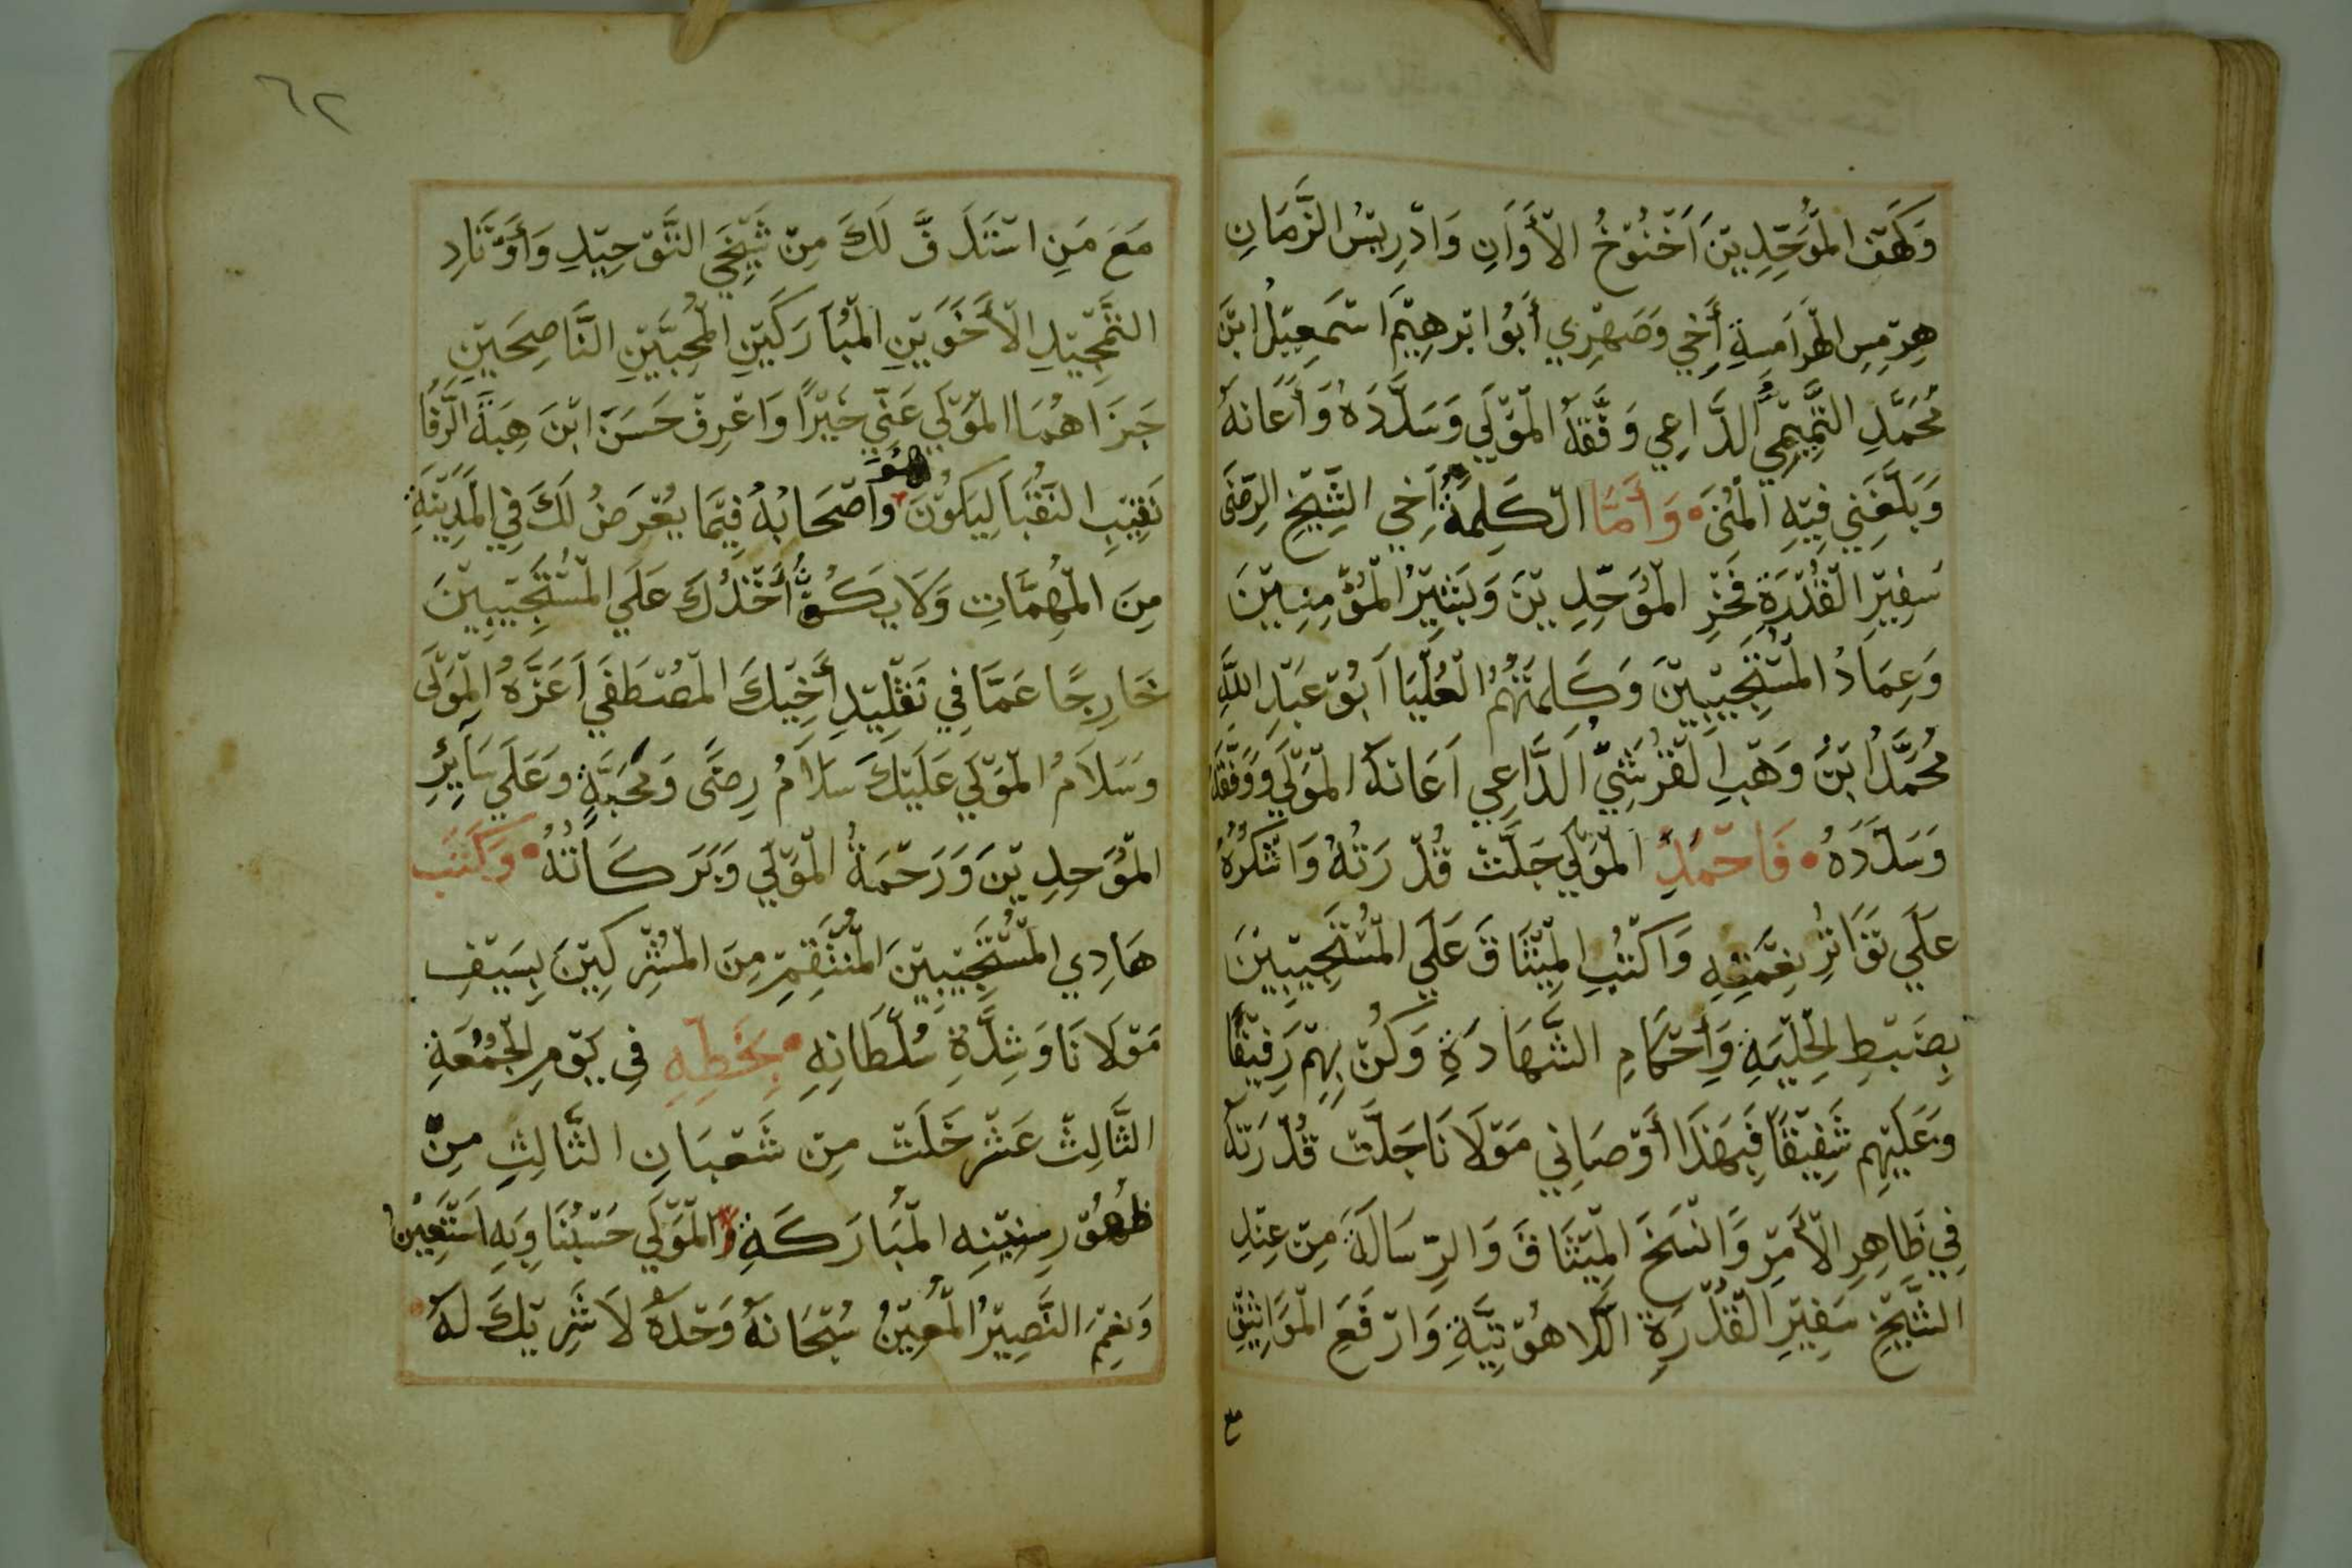 وَكَهْفِ الْمُوَحِّدِيْنَ أَخْنُوْخُ الْأَوَانِ وَادْرِيْسُ الزَّمَانِ
هِرْمِسِ الْهَرَامِسِةِ أَخِي وَصَهْرِي أَبُوْ ابْرَهِيْمَ اسْمَعِيْلُ ابْنُ
مُحَمَّدِ التَّمِيْمِي الدَّاعِي وَفَّقَهُ الْمَوْلَي وَسَدَّدَهُ وَأَعَانَهُ
وَبَلَّغَنِي فِيْهِ الْمُنَى وَأَمَّا الْكَلِمَةُ أَخِي الشَّيْخِ الرِّضَى
سَفِيْرِ الْقُدْرَةِ فَخْرِ الْمُوَحِّدِيْنَ وَبَشِيْرُ الْمُؤْمِنِيْنَ
وَعِمَادُ الْمُسْتَجِيْبِيْنَ وَكَلِمَتُهُمُ الْعُلْيَا اَبُوْ عَبْدِ اللَّهِ
مُحَمَّدُ ابْنُ وَهْبِ الْقُرَشِيّ الَدَّاعِي اَعَانَهُ الْمَوْلَي وَوَفَّقَهُ
وَسَدَّدَهُ فَاحْمَدِ الْمَوْلَي جَلَّتْ قُدْرَتُهُ وَاشْكُرُهُ
عَلَي تَوَاتُرِ نِعْمَتِهِ وَاكْتُبِ الْمِيْثَاقَ عَلَي الْمُسْتَجِيْبِيْنَ
بِضَبْطِ الْحِلْيَةِ وَأَحْكَامِ الشَّهَادَةِ وَكُنْ بِهِمْ رَفِيْقًا
وَعَلَيْهِمْ شَفِيْقًا فَبِهَذَا أَوْصَانِي مَوْلَانَا جَلَّتْ قُدْرَتُهُ
فِي ظَاهِرِ الْأَمْرِ وَانْسَخَ الْمِيْثَاقَ وَالرِّسَالَةَ مِنْ عِنْدِ
الشَّيْخِ سَفِيْرِ الْقُدْرَةِ الْلَاهُوْتِيَّةِ وَارْفَعِ الْمَوَاثِيْقِ
مع
٦٢
مَعَ مَنِ اسْتَدَفَّ لَكَ مِنْ شَيْخَيِ التَّوْحِيْدِ وَأَوْتَادِ
التَّمْجِيْدِ الْأَخَوَيْنِ الْمُبَارَكَيْنِ الْمُحِبَّيْنِ النَّاصِحَيْنِ
جَزَاهُمَا الْمَوْلَي عَنّي خَيْرًا وَاعْرِفْ حَسَنَ ابْنَ هِبَةَ الرَّفَّا
نَقِيْبِ النُّقَبَا لِيَكُوْنَ هُوَ وَاَصْحَابُهُ فِيْمَا يُعْرَضُ لَكَ فِي الْمَدِيْنَةِ
مِنَ الْمُهِمَّاتِ وَلَا يَكُوْنُ أَخْذُكَ عَلَي الْمُسْتَجِيْبِيْنَ
خَارِجًا عَمَّا فِي تَقْلِيْدِ أَخِيْكَ الْمُصْطَفَي اَعَزَّهُ الْمَوْلَى
وَسَلَامُ الْمَوْلَي عَلَيْكَ سَلَامُ رِضًى وَمَحَبَّةٍ وَعَلَي سَآيِرِ
الْمُوَحِدِيْنَ وَرَحْمَةُ الْمَوْلَي وَبَرَكَاتُهُ وَكَتَبَ
هَادِي الْمُسْتَجِيْبِيْنَ الْمُنْتَقِمِ مِنَ الْمُشْرِكِيْنَ بِسَيْفِ
مَوْلَانَا وَشِدَّةِ سُلْطَانِهِ بِخَطِّهِ فِي يَوْمِ الْجُمُعَةِ
الثَّالِثْ عَشْر خَلَتْ مِنْ شَعْبَانِ الثَّالِثِ مِنْ
ظُهُوْرِ سِنِيْنِهِ الْمُبَارَكَةِ وَالْمَوْلَي حَسْبُنَا وَبِهِ اَسْتَعِيْنُ
وَنِعْمَ النَّصِيْرُ الْمُعِيْنُ سُبْحَانَهُ وَحْدَهُ لَا شَرِيْكَ لَهُ